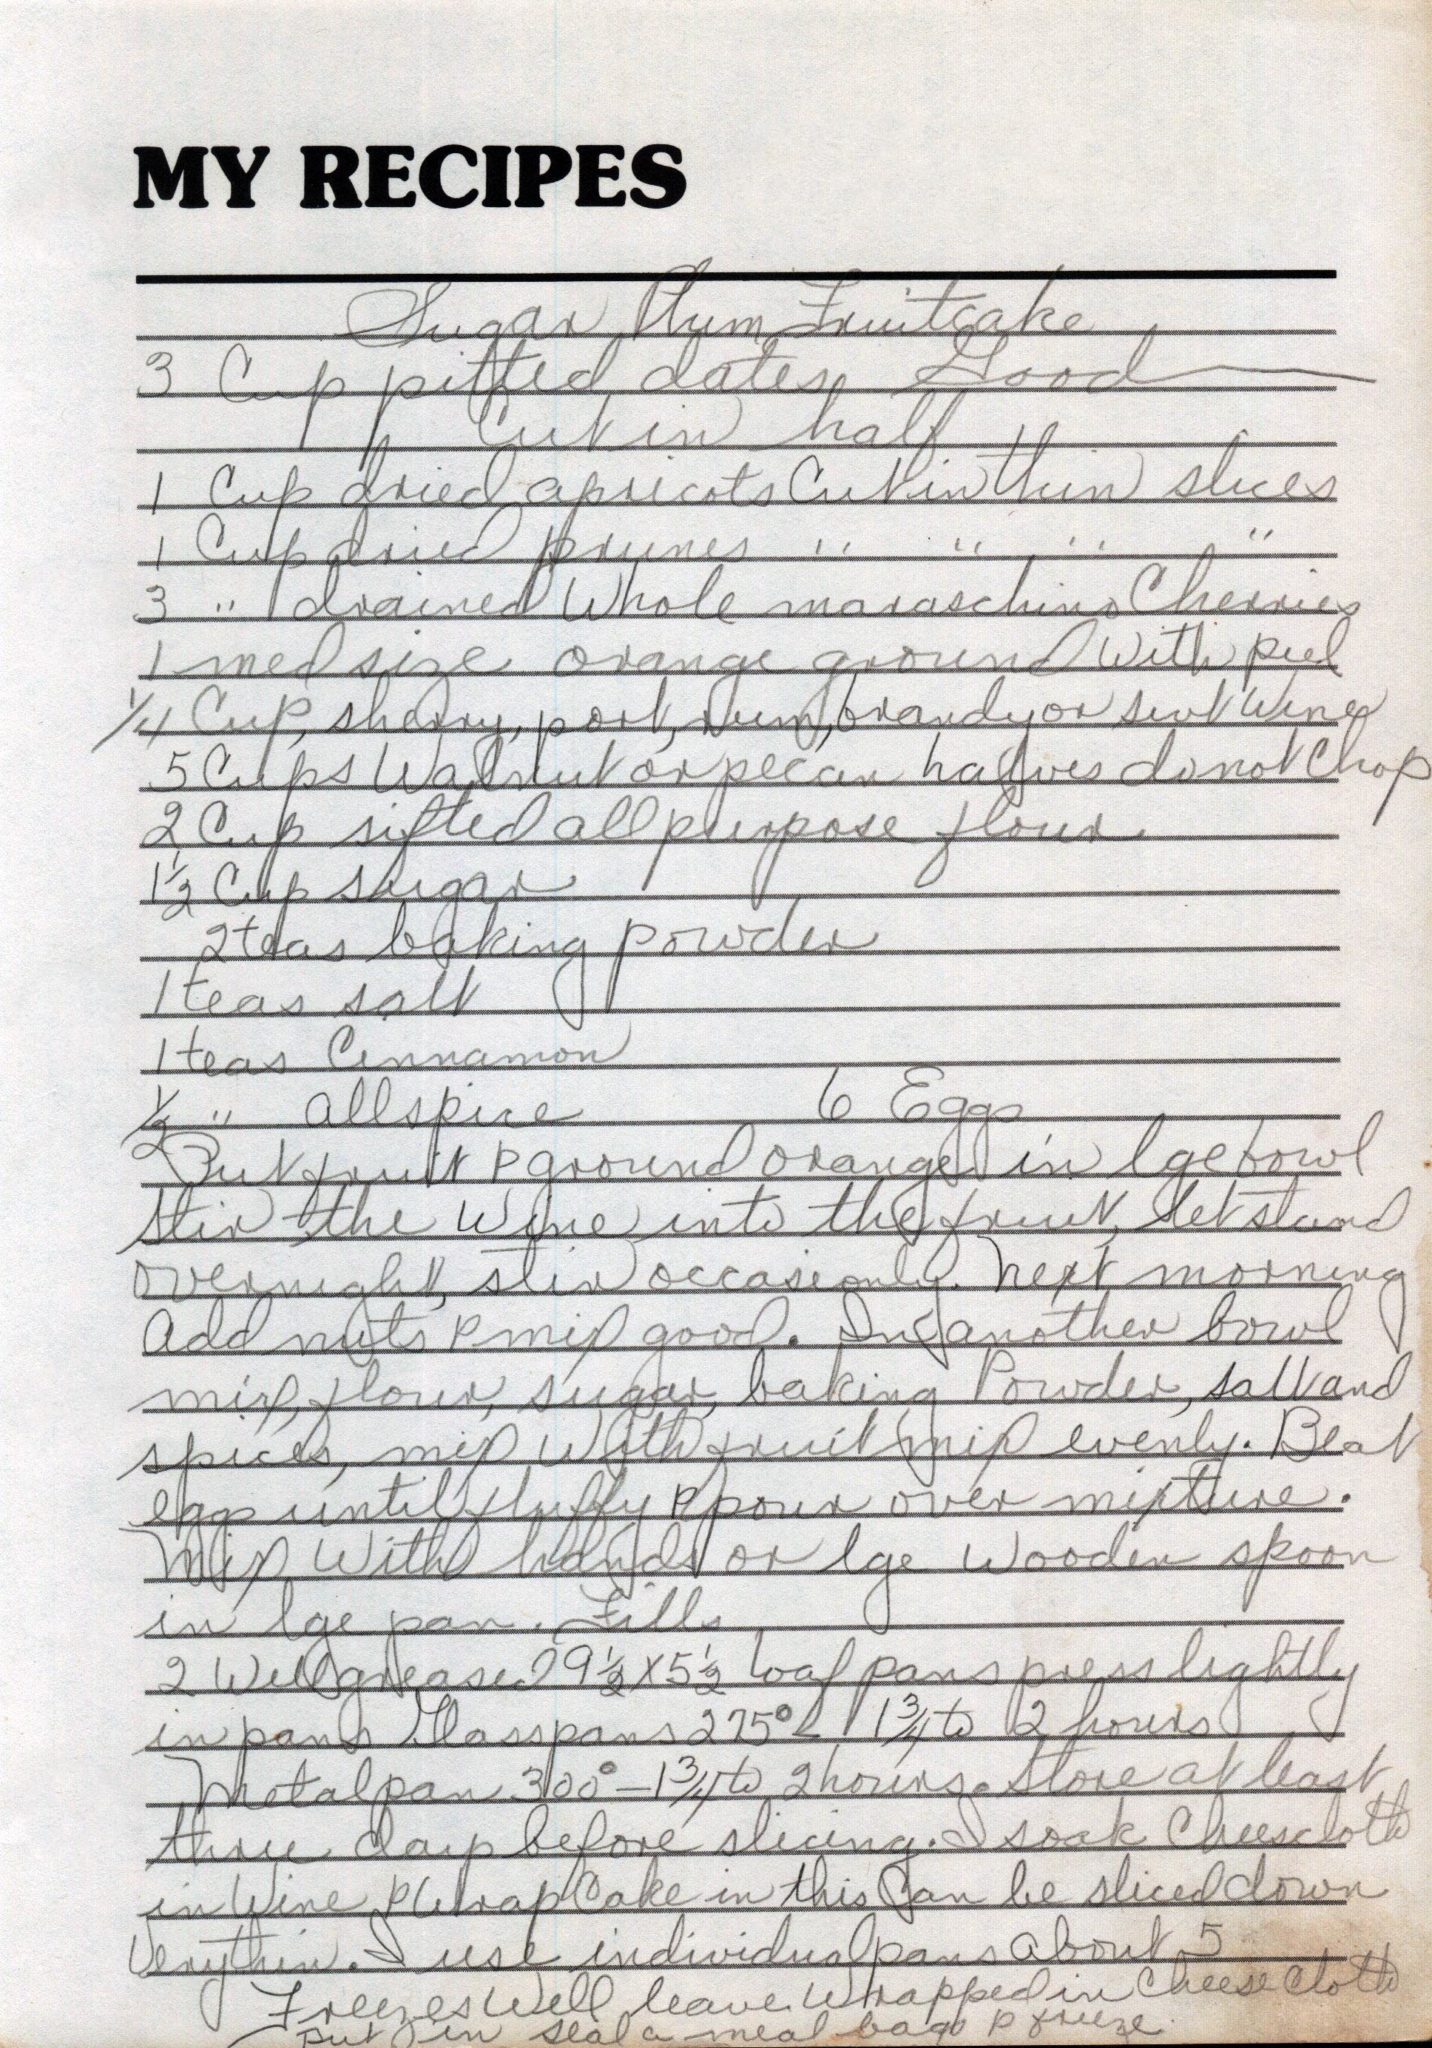 MY RECIPES
Sugar Plum Fruitcake
3 Cup pitted dates Good
Cut in half
1 Cup dried apricots Cut in thin slices
1 Cup dried prunes " " " "
3 " drained Whole maraschino Cherries
1 med size orange ground With peel
1/4 Cup, sherry, port, rum, brandy or swt Wine
5 Cups Walnut or pecan halves do not Chop
2 Cup sifted all purpose flour
1 1/2 Cup sugar
2 teas baking powder
1 teas salt
1 teas Cinnamon
1/2 " allspice 6 Eggs
Put fruit & ground orange in lge bowl
Stir the Wine into the fruit, let stand
overnight, stir occaseonly. Next morning
Add nuts & mix good. In another bowl
mix, flour, sugar, baking Powder, salt and
spices, mix With fruit mix evenly. Beat
eggs until fluffy & pour over mixture.
Mix With hands or lge Wooden spoon
in lge pan. Fills
2 Well greased 9 1/2 x 5 1/2 loaf pans press lightly
in pans Glass pans 275° 1 3/4 to 2 hours
Metal pan 300° - 1 3/4 to 2 hours. Store at least
three days before slicing. I soak Cheesecloth
in Wine & Wrap Cake in this Can be sliced down
Very thin. I use individual pans about 5
Freezes Well leave Wrapped in Cheese Cloth
put in seal a meal bags & freeze.